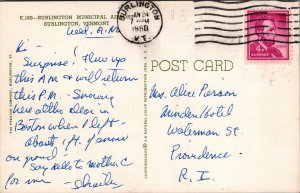 K.160—BURLINGTON MUNICIPAL
BURLINGTON, VERMONT
BURLINGTON
JAN 24
1968
VT.
4¢
Wed. A.M.
Hi —
Surprise! Flew up
this A.M. & will return
this P.M. Snowy
weather clear in
Boston when I left —
about 1 ft. of snow
on ground.
Say hello to mother
for me —
POST CARD
Mrs. Alice Pearson
Minden Hotel
Waterman St.
Providence —
R. I.